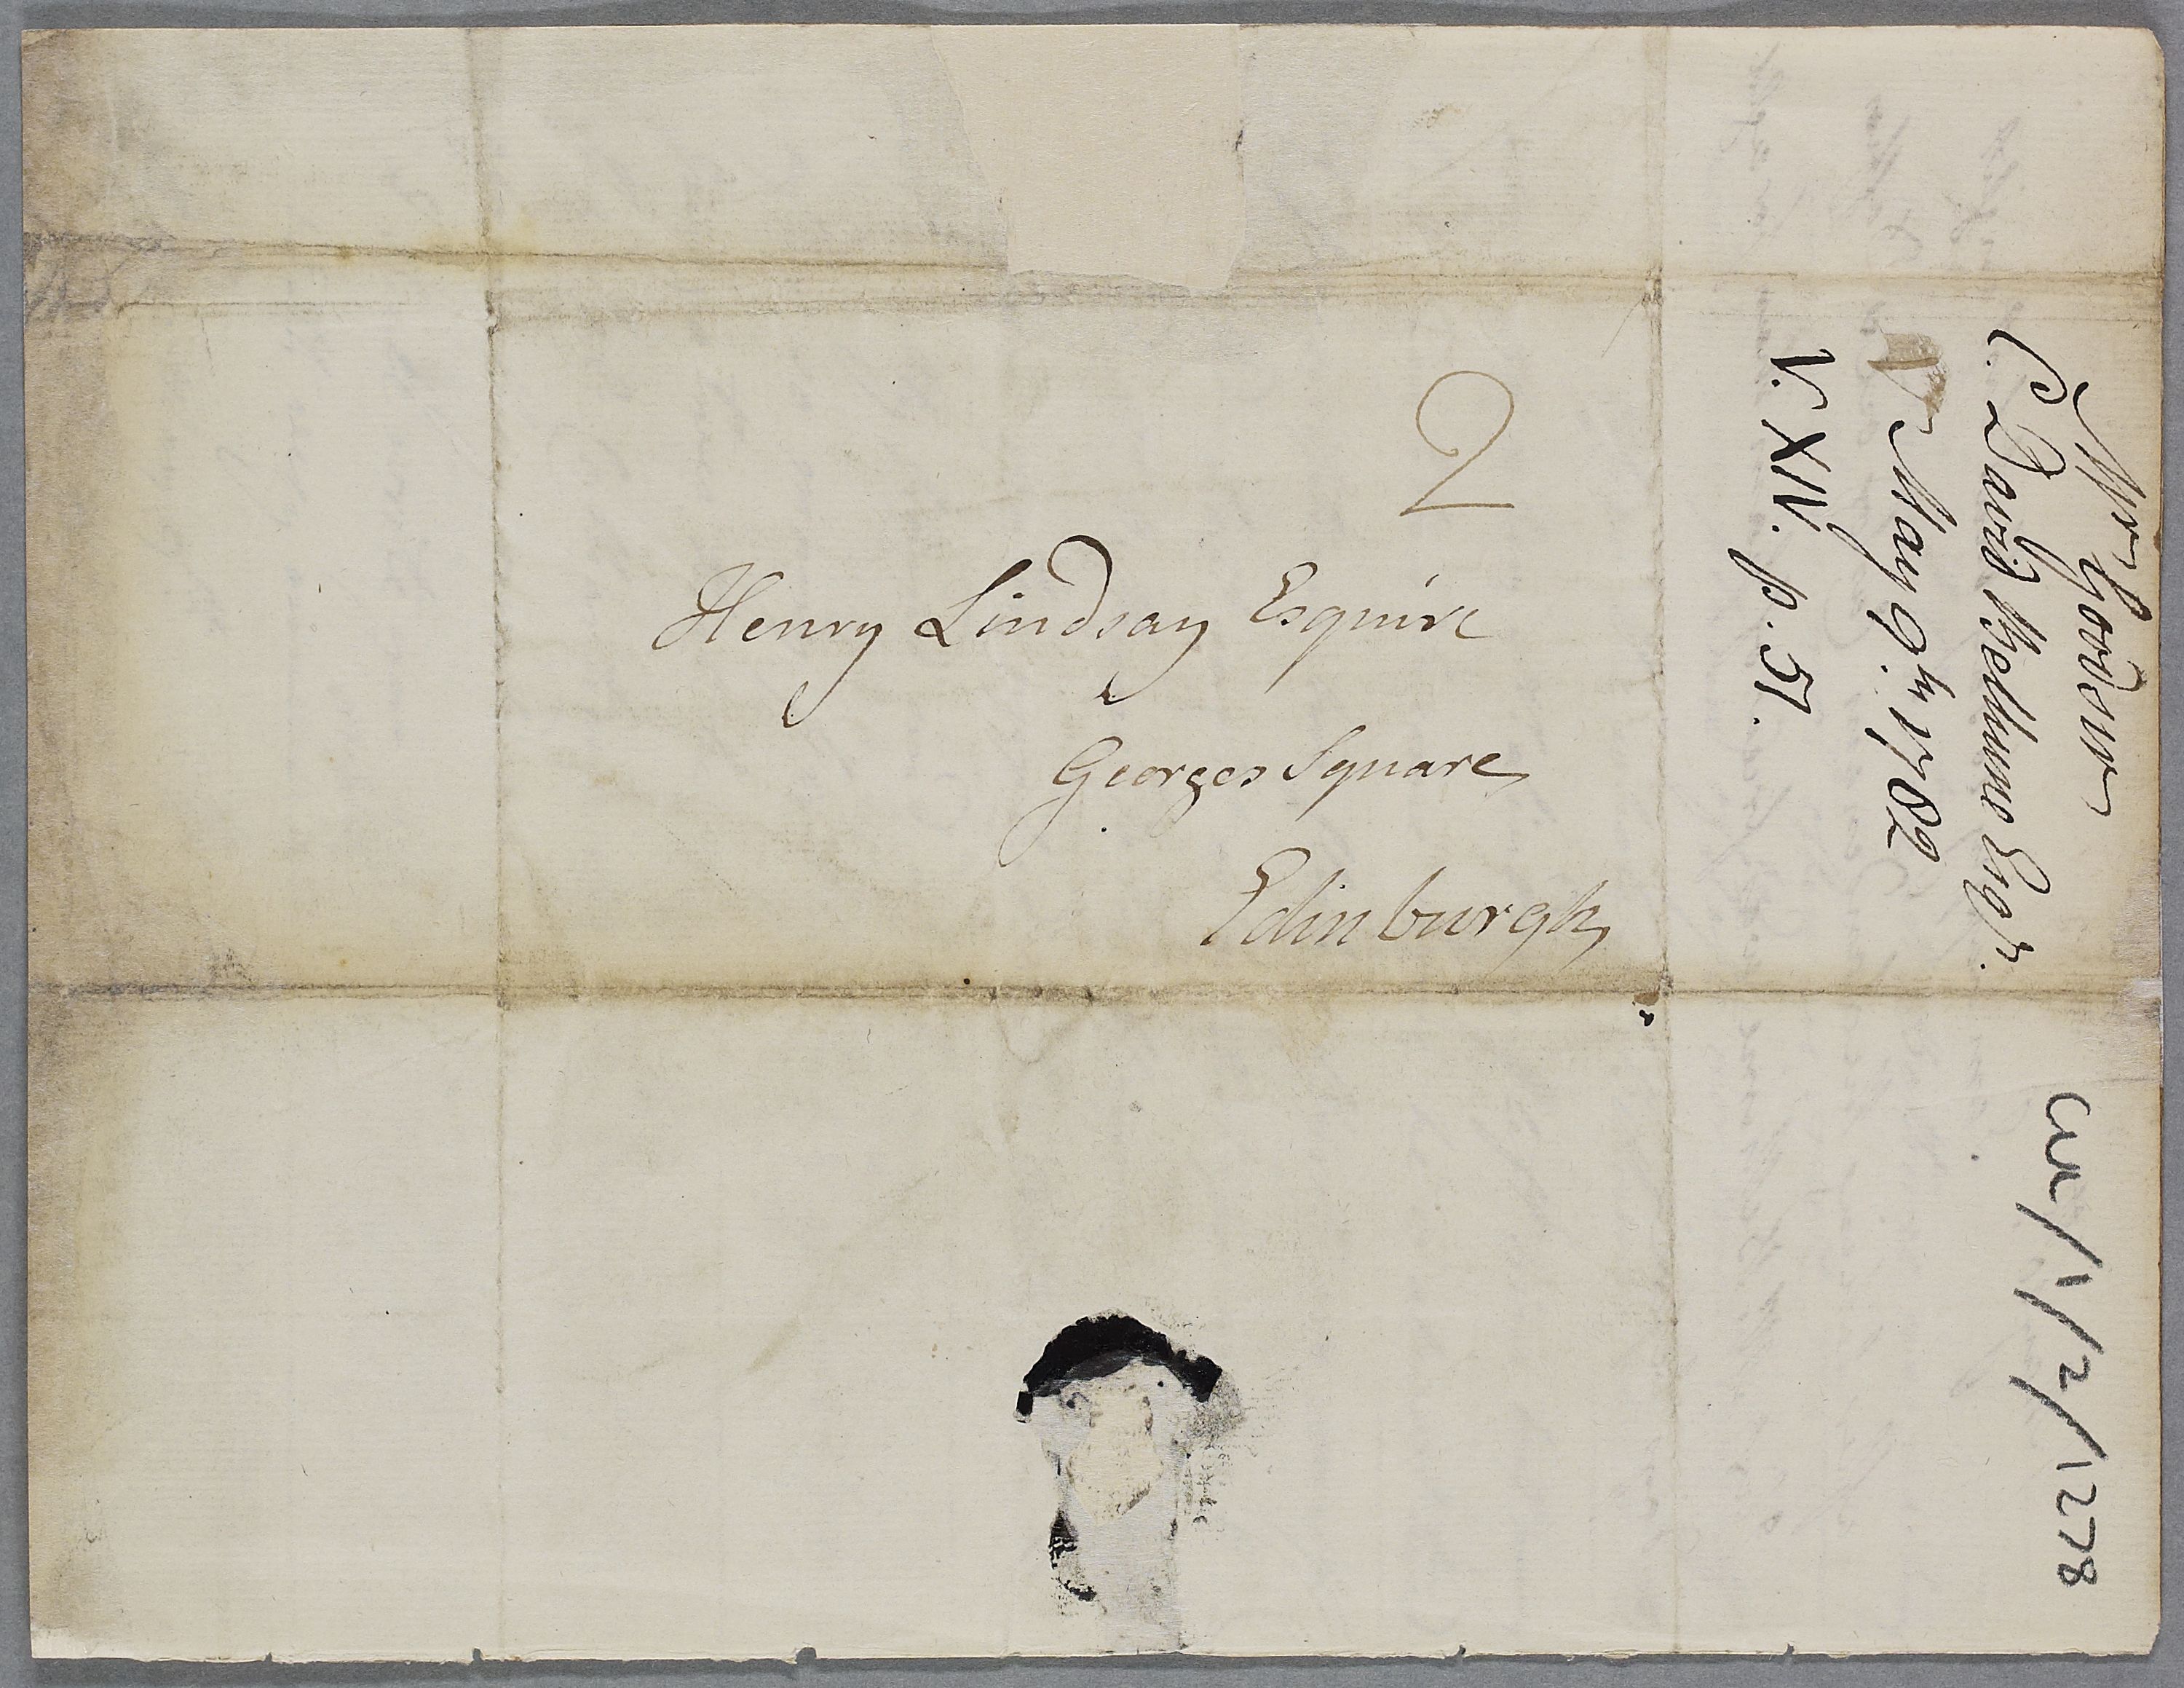 2
Henry Lindsay Esquire
Georges Square
Edinburgh
Mr Goodsir
C. David Bethune Esqr.
May 9.th 1782
V. XIV. p. 51.
CUL/1/2/1278